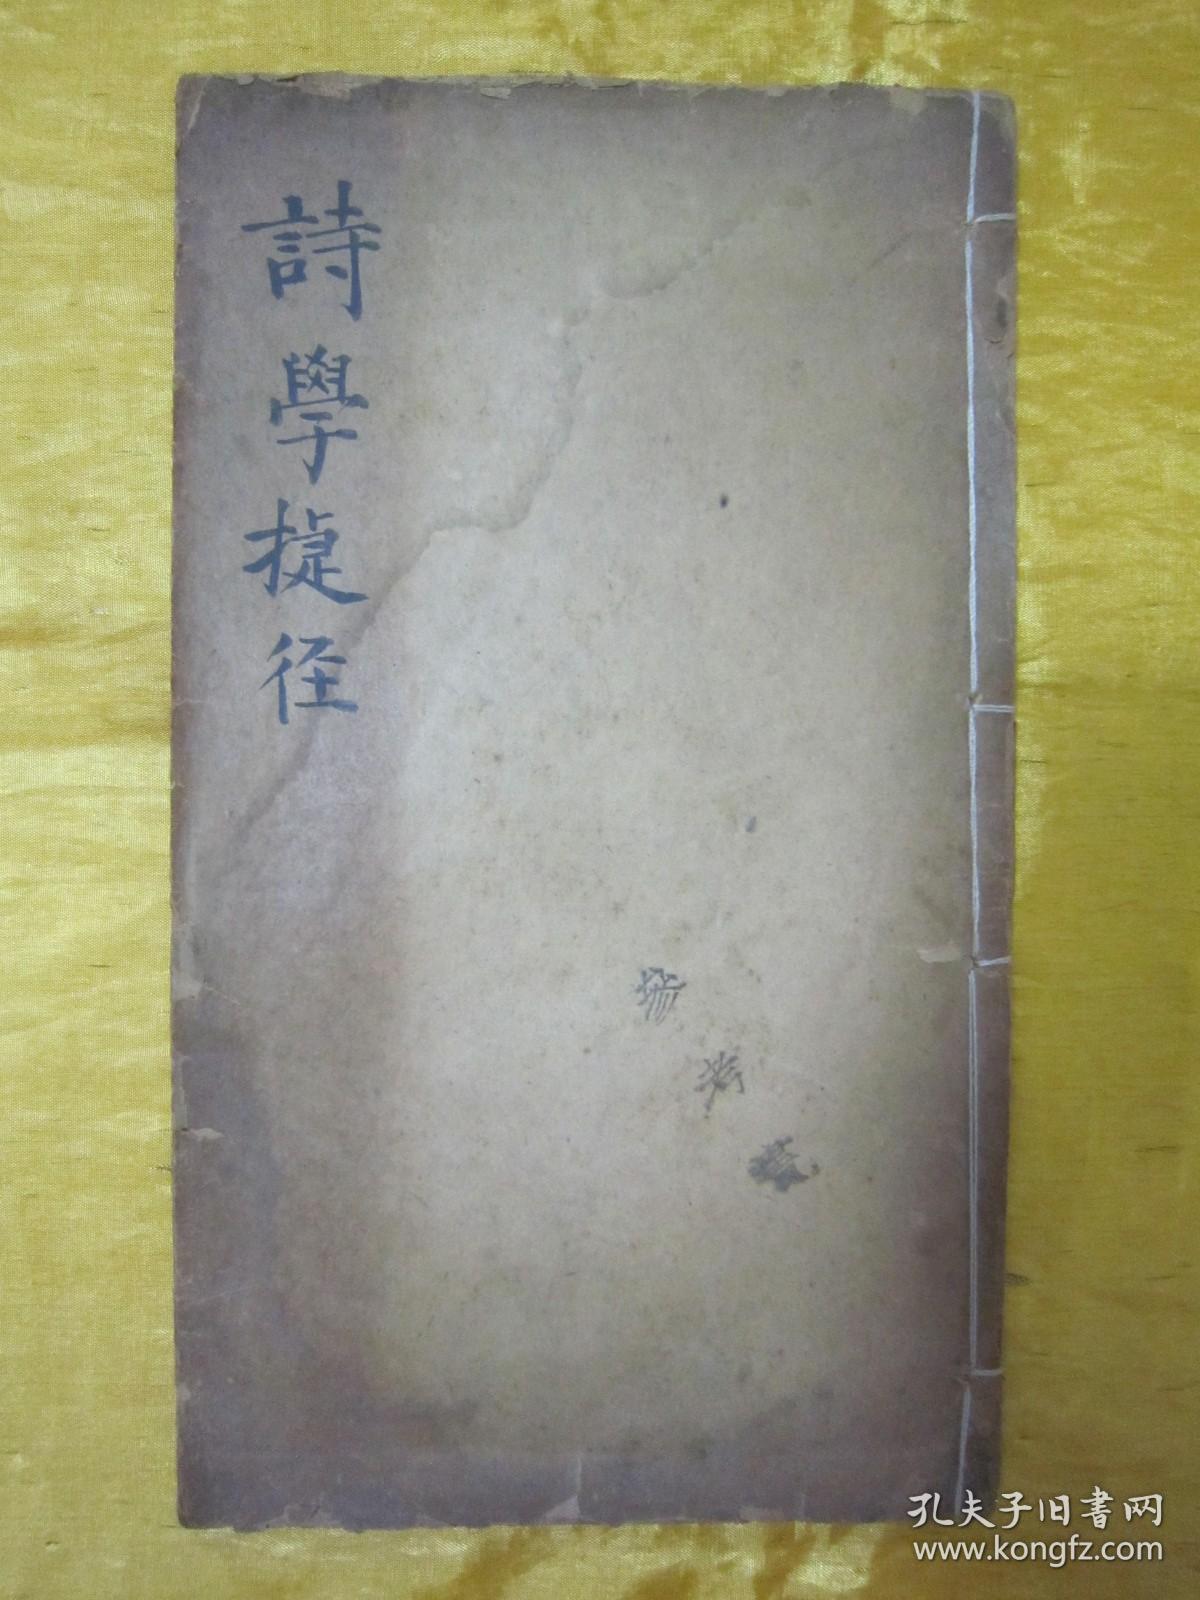 詩學捷径
孔夫子旧書网
www.kongfz.com